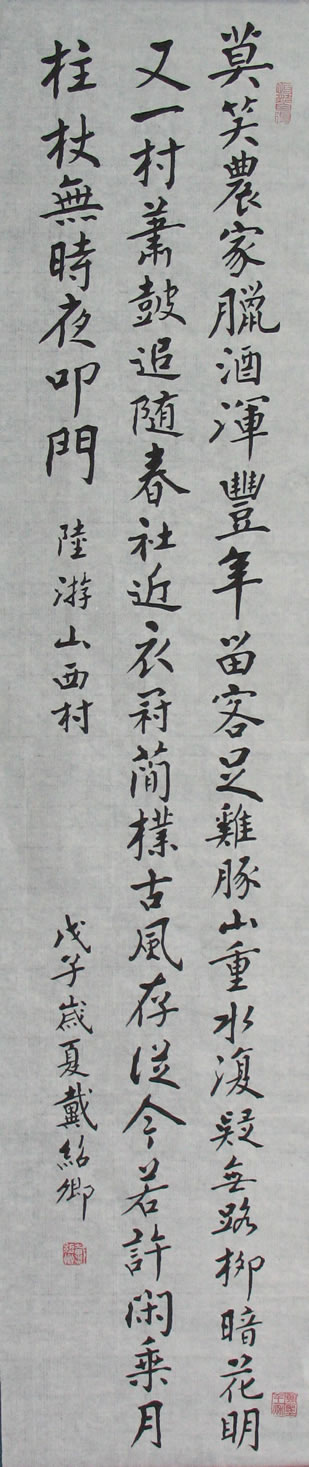 莫笑農家臘酒渾豐年留客足雞豚山重水復疑無路柳暗花明
又一村蕭鼓追随春社近衣冠蕳樸古風存從今若許閑乗月
柱杖無時夜叩門
陸游山西村
戊子歲夏戴紹卿